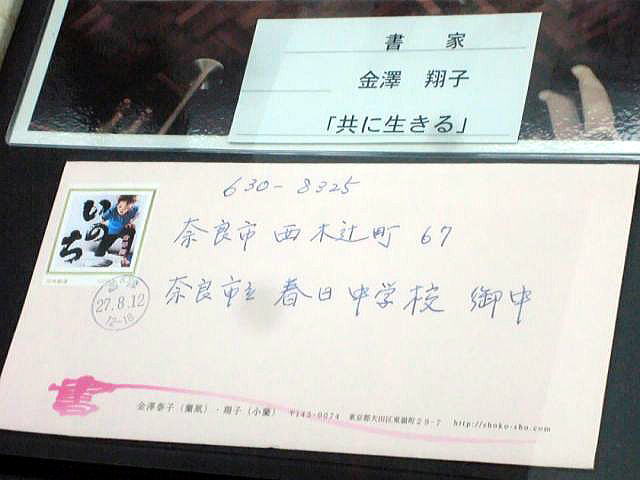 書　家
金澤　翔子
「共に生きる」
630-8325
奈良市 西木辻町 67
奈良市立 春日中学校 御中
いのち
27.8.12
12-18
書
金澤泰子（蘭凰）・翔子（小蘭）　〒145-0074　東京都大田区東嶺町29-7　http://shoko-sho.com